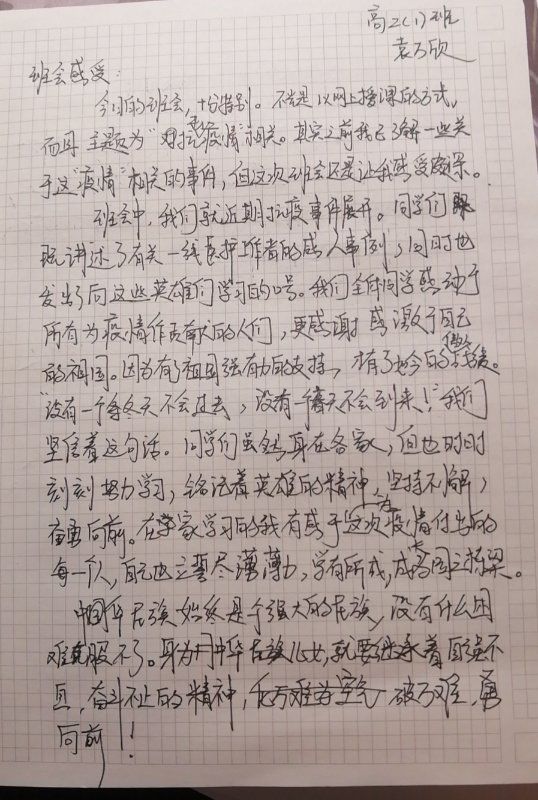 高2(1)班
袁万欣
班会感受:
今日的班会,十分特别。不光是以网上授课的方式,
而且主题为"对抗疫情"相关。其实之前我已了解一些关
于这"疫情"相关的事件,但这次班会还是让我感受颇深。
班会中,我们就近期抗疫事件展开。同学们
既讲述了有关一线医护工作者的感人事例,同时也
发出了向这些英雄们学习的口号。我们全体同学感动于
所有为疫情作贡献的人们,更感谢感激于自己
的祖国。因为有了祖国强有力的支持,才有了如今的
"没有一个冬天不会过去,没有一个春天不会到来!"我们
坚信着这句话。同学们虽然身在各家,但也时时
刻刻努力学习,铭记着英雄的精神,坚持不懈,
奋勇向前。在家学习的我有感于这次为疫情付出的
每一个人,自己也立誓尽薄力,学有所成,成为国之栋梁。
中国华民族始终是个强大的民族,没有什么困
难克服不了。身为中华民族儿女,就要继承着自强不
息,奋斗不止的精神,化万难为空气 破万难,勇
向前!